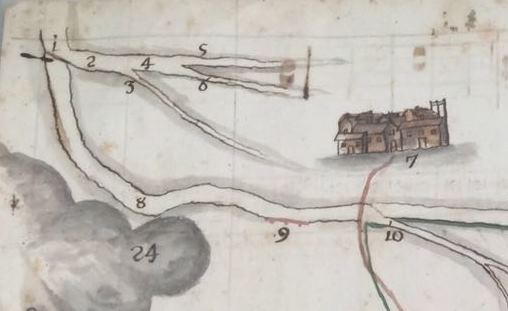 1
2 4 5
3 6
7
8
9 10
24